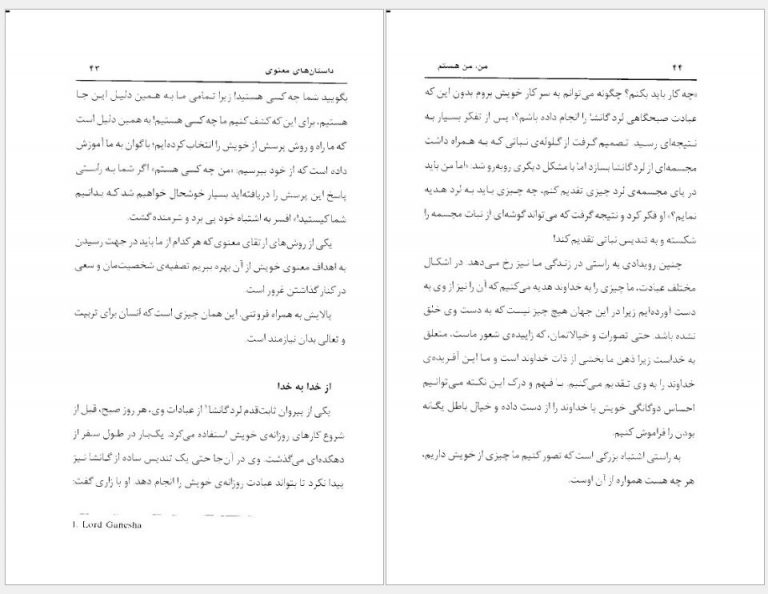 داستان‌های معنوی ۴۳
بگویید شما چه کسی هستید! زیرا تمامی ما به همین دلیل این جا
هستیم، برای این که کشف کنیم ما چه کسی هستیم! به همین دلیل است
که ما راه و روش پرسش از خویش را انتخاب کرده‌ایم! باگوان به ما آموزش
داده است که از خود بپرسیم: «من چه کسی هستم» اگر شما به راستی
پاسخ این پرسش را دریافته‌اید بسیار خوشحال خواهیم شد که بدانیم
شما کیستید!» افسر به اشتباه خود پی برد و شرمنده گشت.
یکی از روش‌های ارتقای معنوی که هر کدام از ما باید در جهت رسیدن
به اهداف معنوی خویش از آن بهره ببریم تصفیه‌ی شخصیت‌مان و سعی
در کنار گذاشتن غرور است.
پالایش به همراه فروتنی. این همان چیزی است که انسان برای تربیت
و تعالی بدان نیازمند است.
از خدا به خدا
یکی از پیروان ثابت‌قدم لرد گانشا۱ از عبادات وی، هر روز صبح، قبل از
شروع کارهای روزانه‌ی خویش استفاده می‌کرد. یک‌بار در طول سفر از
دهکده‌ای می‌گذشت. وی در آن‌جا حتی یک تندیس ساده از گانشا نیز
پیدا نکرد تا بتواند عبادت روزانه‌ی خویش را انجام دهد. او با زاری گفت:
1. Lord Ganesha
۴۴ من، من هستم
«چه کار باید بکنم؟ چگونه می‌توانم به سر کار خویش بروم بدون این که
عبادت صبحگاهی لرد گانشا را انجام داده باشم؟»، پس از تفکر بسیار به
نتیجه‌ای رسید. تصمیم گرفت از گلوله‌ی نباتی که به همراه داشت
مجسمه‌ای از لرد گانشا بسازد اما با مشکل دیگری روبه‌رو شد: «اما من باید
در پای مجسمه‌ی لرد چیزی تقدیم کنم، چه چیزی باید به لرد هدیه
نمایم؟» او فکر کرد و نتیجه گرفت که می‌تواند گوشه‌ای از نبات مجسمه را
شکسته و به تندیس نباتی تقدیم کند!
چنین رویدادی به راستی در زندگی ما نیز رخ می‌دهد. در اشکال
مختلف عبادت، ما چیزی را به خداوند هدیه می‌کنیم که آن را نیز از وی به
دست آورده‌ایم زیرا در این جهان هیچ چیز نیست که به دست وی خلق
نشده باشد. حتی تصورات و خیالاتمان، که زاییده‌ی شعور ماست، متعلق
به خداست زیرا ذهن ما بخشی از ذات خداوند است و ما این آفریده‌ی
خداوند را به وی تقدیم می‌کنیم. با فهم و درک این نکته می‌توانیم
احساس دوگانگی خویش با خداوند را از دست داده و خیال باطل یگانه
بودن را فراموش کنیم.
به راستی اشتباه بزرگی است که تصور کنیم ما چیزی از خویش داریم،
هر چه هست همواره از آن اوست.